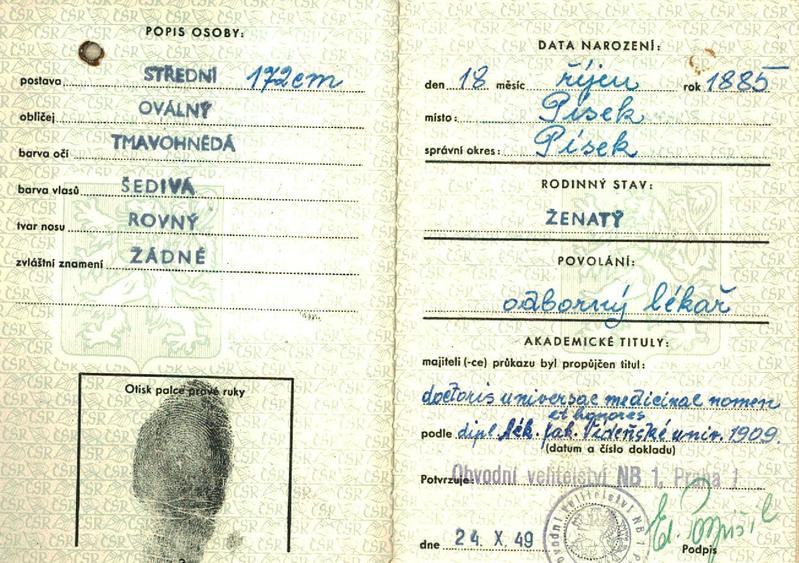 POPIS OSOBY:
postava STŘEDNÍ 172cm
obličej OVÁLNÝ
barva očí TMAVOHNĚDÁ
barva vlasů ŠEDIVÁ
tvar nosu ROVNÝ
zvláštní znamení ŽÁDNÉ
Otisk palce pravé ruky
DATA NAROZENÍ:
den 18 měsíc říjen rok 1885
místo: Písek
správní okres: Písek
RODINNÝ STAV:
ŽENATÝ
POVOLÁNÍ:
odborný lékař
AKADEMICKÉ TITULY:
majiteli (-ce) průkazu byl propůjčen titul:
doctoris universae medicinae nomen
et honores
podle dipl. lék. fak. Vídeňské univ. 1909.
(datum a číslo dokladu)
Potvrzuje: Obvodní velitelství NB 1, Praha 1
dne 24. X. 49
Podpis